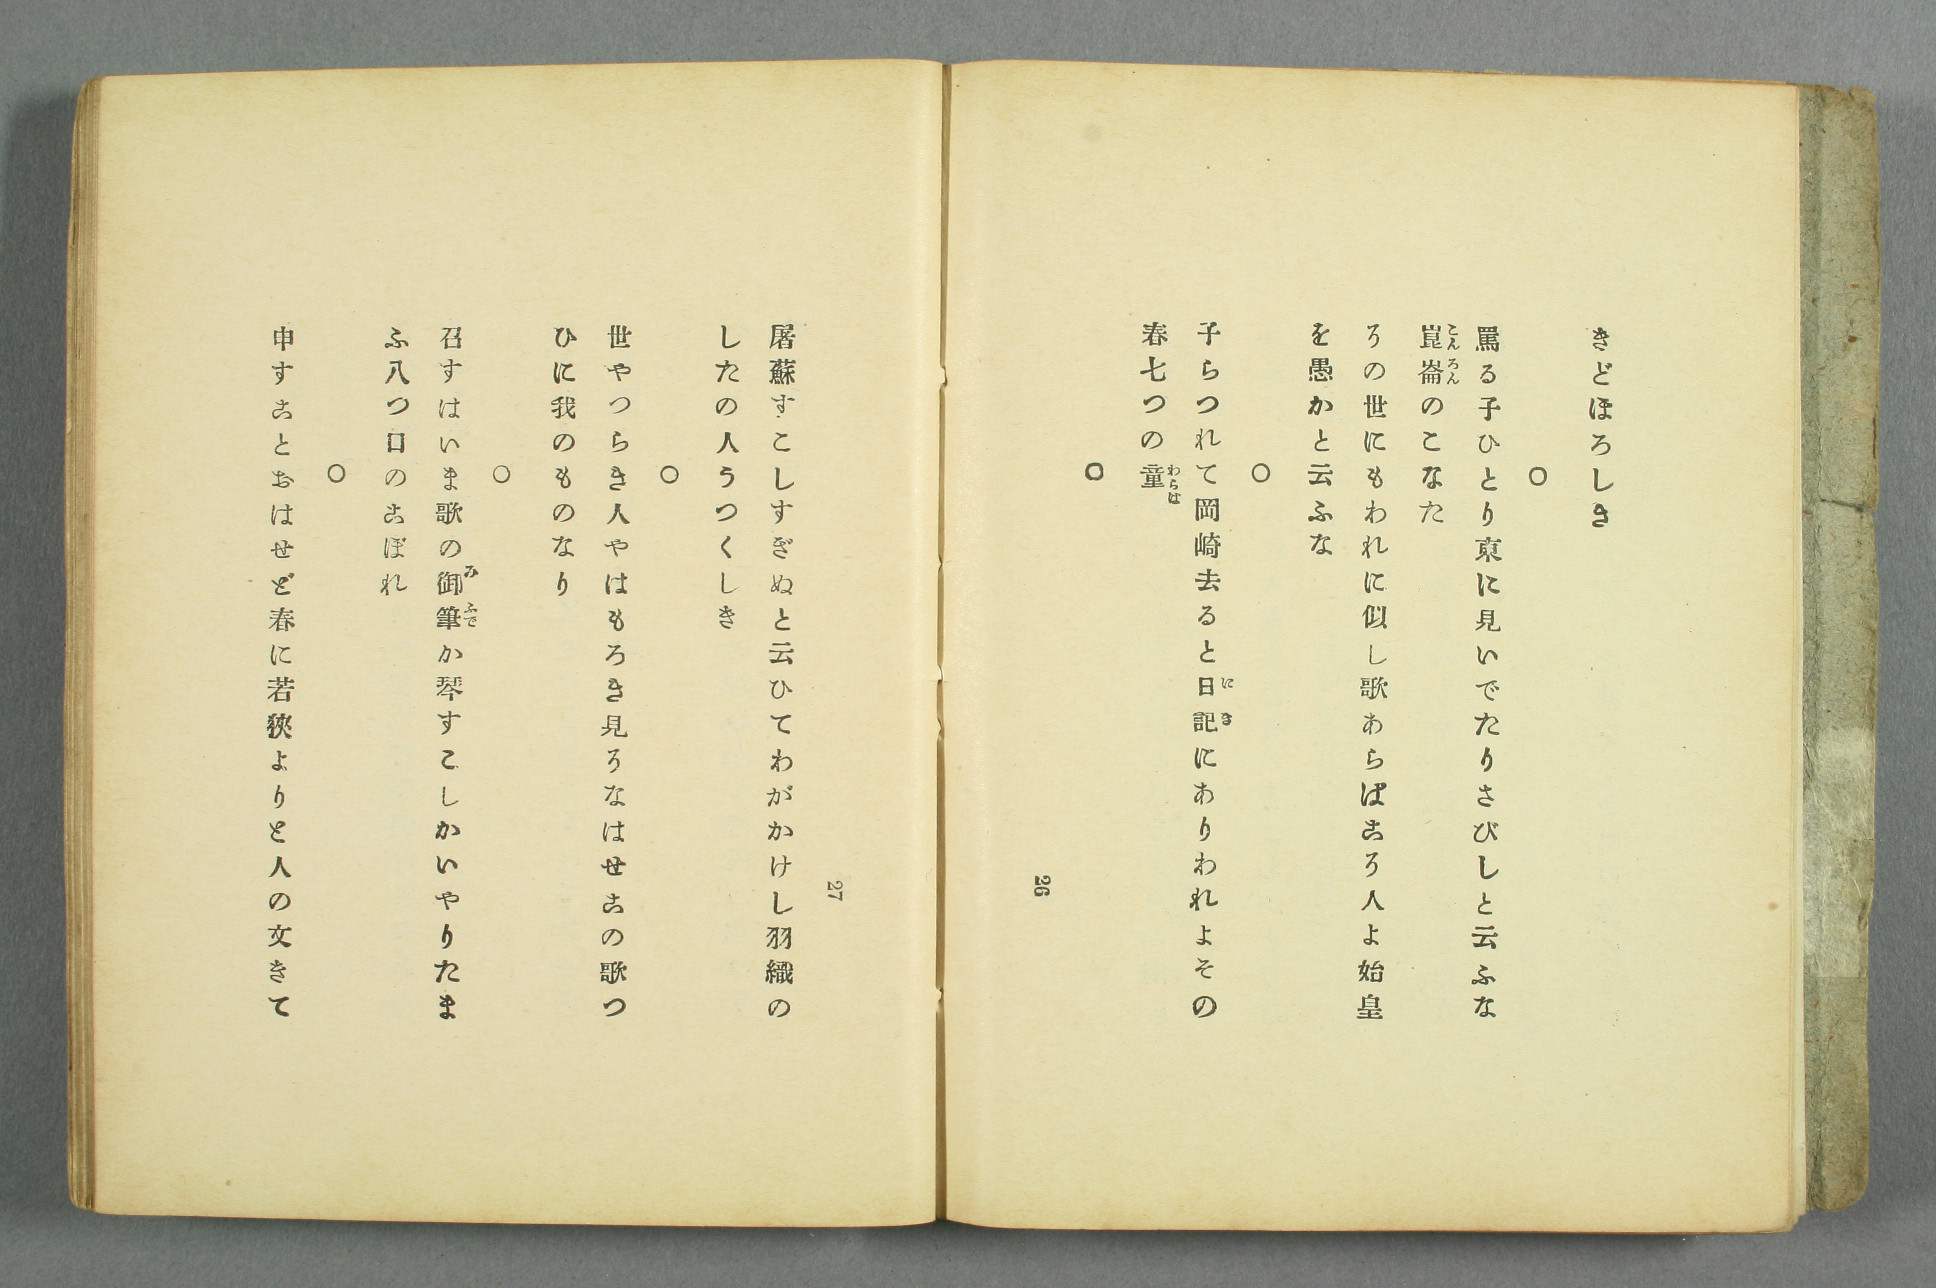 きどほろしき
○
罵る子ひとり東に見いでたりさびしと云ふな
崑崙のこなた
こんろん
うの世にもわれに似し歌あらばこう人よ始皇
を愚かと云ふな
○
子らつれて岡崎去ると日記にありわれよその
にき
春七つの童
わらは
○
26
27
屠蘇すこしすぎぬと云ひてわがかけし羽織の
したの人うつくしき
○
世やつらき人やはもろき見うなはせこの歌つ
ひに我のものなり
○
召すはいま歌の御筆か琴すこしかいやりたま
みふで
ふ八つ口のこぼれ
○
申すことおはせど春に若狹よりと人の文きて